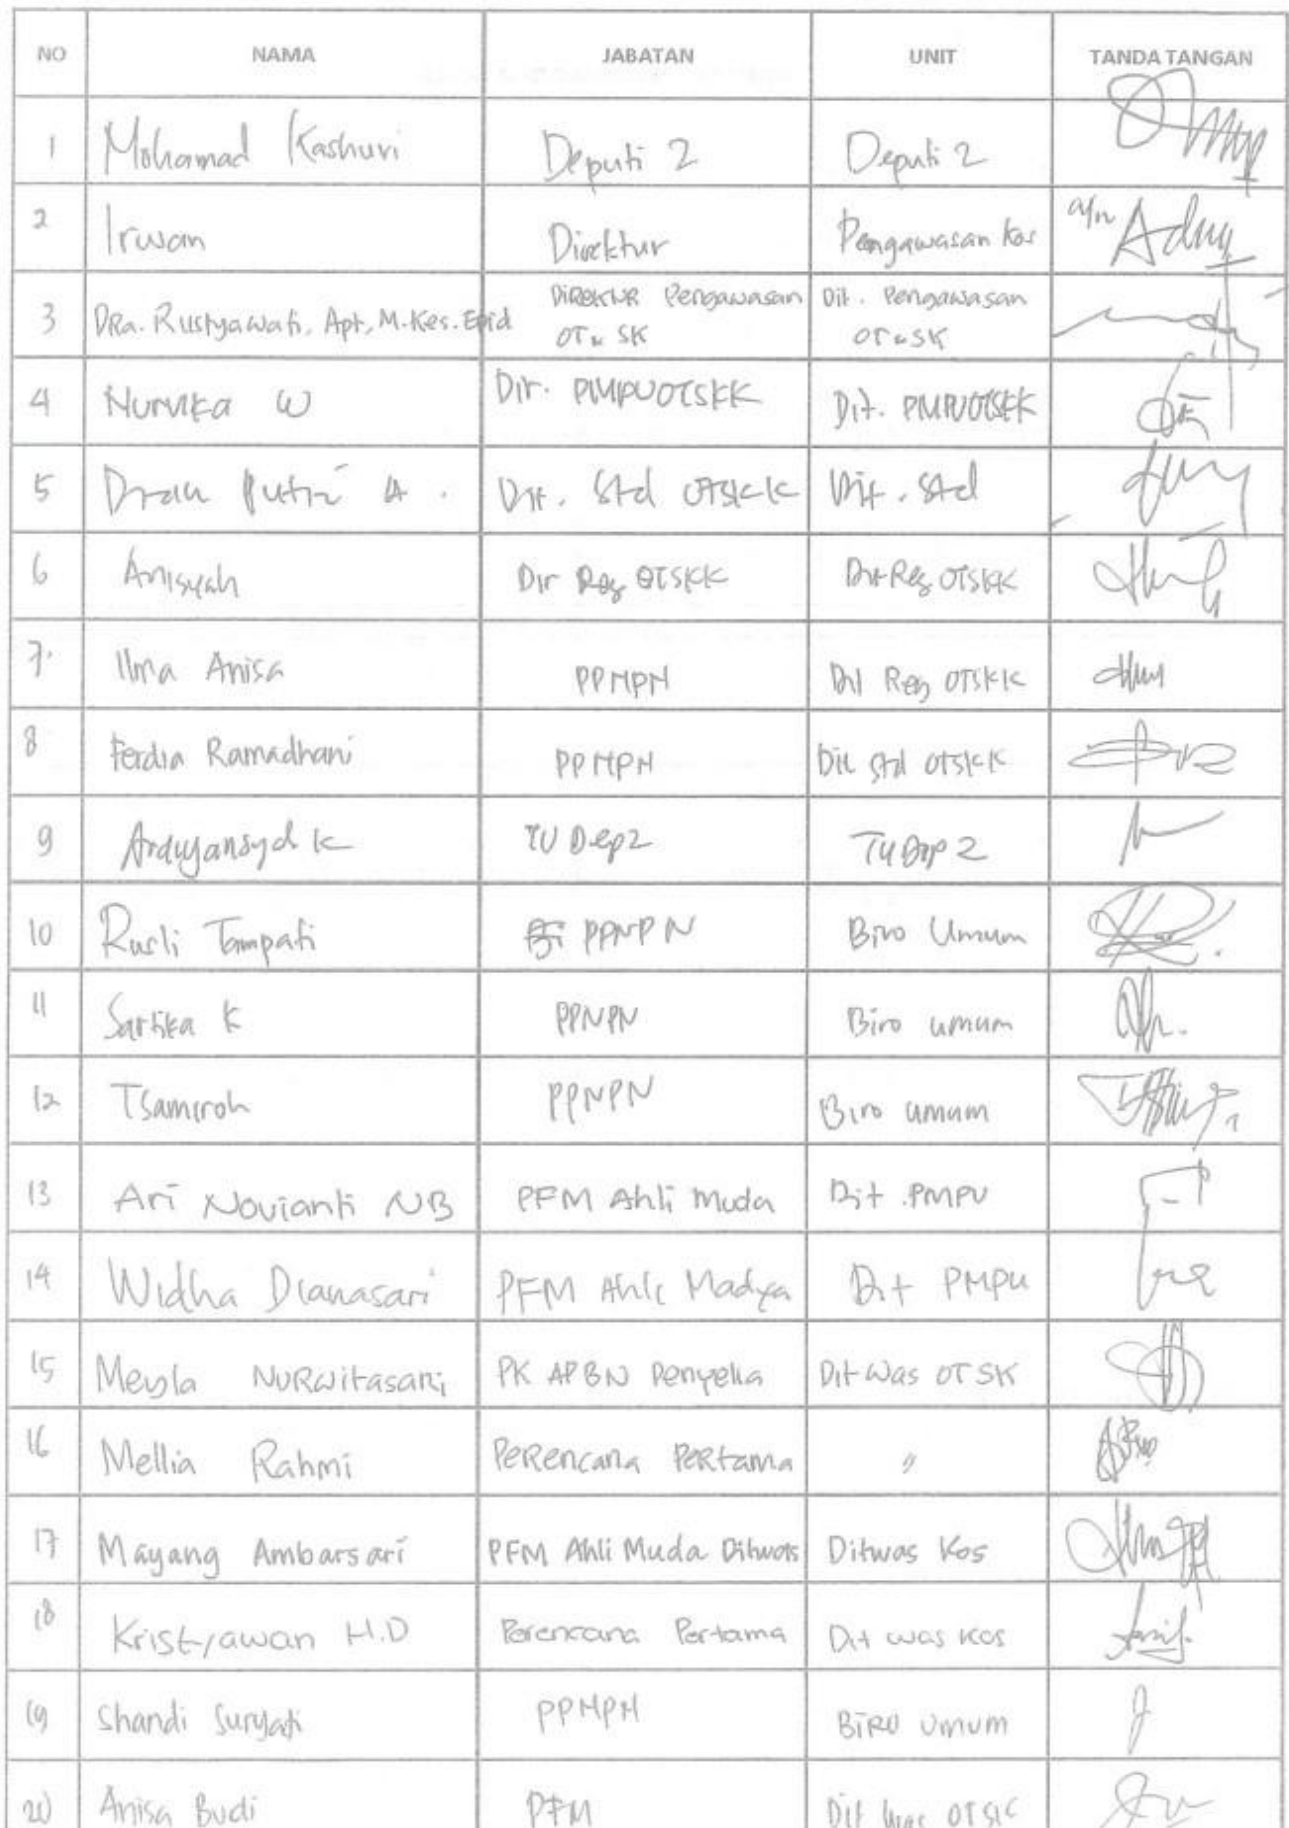 NO NAMA JABATAN UNIT TANDA TANGAN
1 Mohamad Kashuri Deputi 2 Deputi 2
2 Irwan Direktur Pengawasan Kos a/n
3 DRa. Rustyawati, Apt, M.Kes. Epid DIREKTUR Pengawasan OT & SK Dit. Pengawasan OT & SK
4 Nurvika W Dir. PMPUOTSKK Dit. PMPUOTSKK
5 Putri A. Dit. Std OTSKK Dit. Std
6 Anisyah Dir Reg OTSKK Dit Reg OTSKK
7. Ilma Anisa PPNPN Dit Reg OTSKK
8 Ferdia Ramadhani PPNPN Dit Std OTSKK
9 K TU Dep 2 TU Dep 2
10 Rusli Tampati PPNPN Biro Umum
11 Sartika K PPNPN Biro umum
12 Tsamiroh PPNPN Biro umum
13 Ari Novianti NB PFM Ahli Muda Dit . PMPU
14 Widha Dianasari PFM Ahli Madya Dit PMPU
15 NURwitasari PK APBN Penyelia Dit Was OT SK
16 Mellia Rahmi PeRencana PeRtama 〃
17 Mayang Ambarsari PFM Ahli Muda Ditwas Ditwas Kos
18 Kristyawan H.D Perencana Pertama Dit was kos
19 Shandi Suryati PPNPN BIRO Umum
20 Anisa Budi PFM Dit Was OTSK